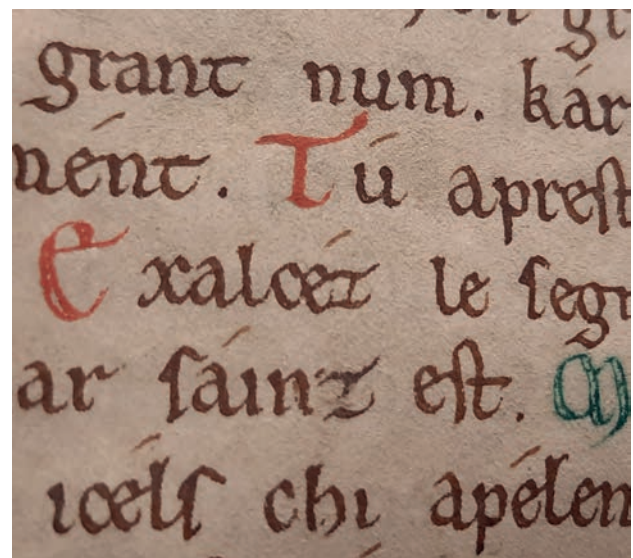 grant num. kár
nént. Tú aprest
Exalcéz le segn
ar sáinz est. M
icéls chi apélen